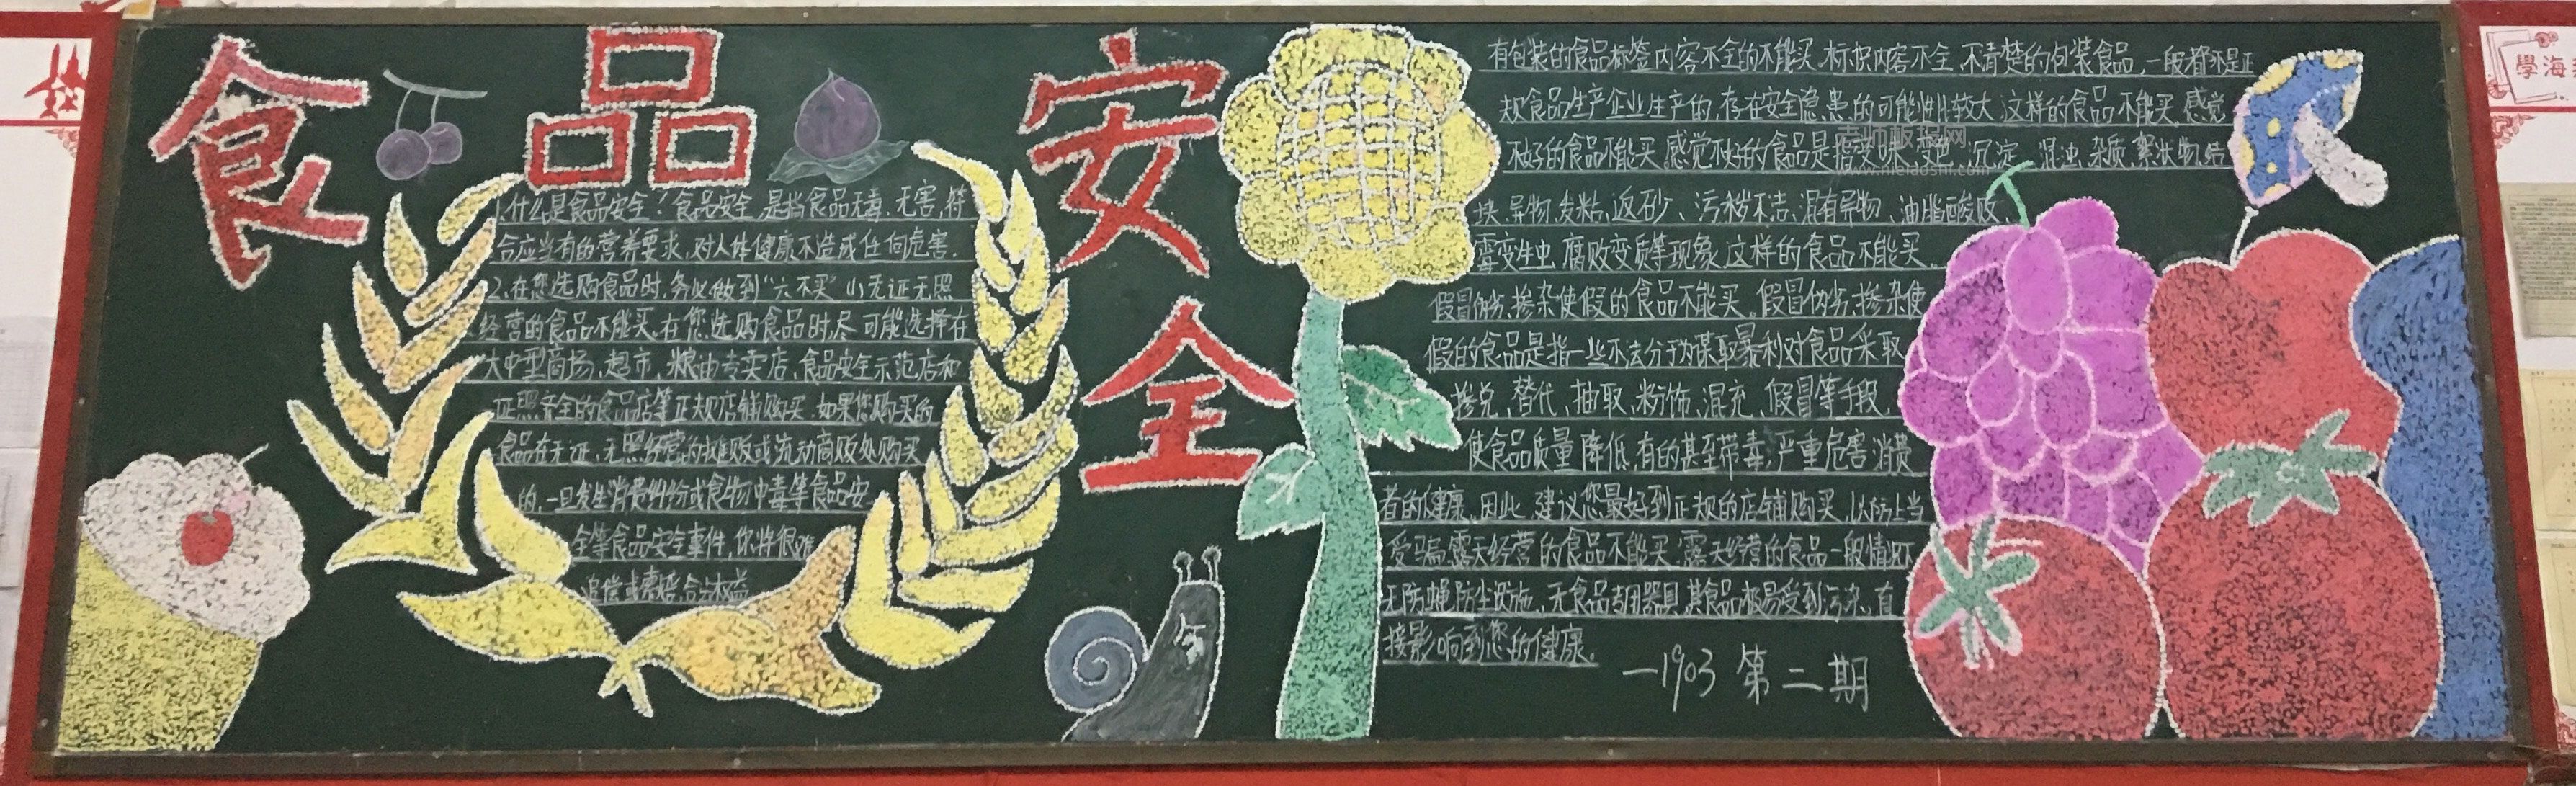 食品安全
1.什么是食品安全?食品安全,是指食品无毒、无害,符
合应当有的营养要求,对人体健康不造成任何危害.
2.在您选购食品时,务必做到“六不买”(1)无证无照
经营的食品不能买.在您选购食品时,尽可能选择在
大中型商场、超市、粮油专卖店、食品安全示范店和
证照齐全的食品店等正规店铺购买.如果您购买的
食品在无证、无照经营的摊贩或流动商贩处购买
的,一旦发生消费纠纷或食物中毒等食品安
全等食品安全事件,你将很难
追偿或索赔合法权益
有包装的食品标签内容不全的不能买.标识内容不全、不清楚的包装食品,一般都不是正
规食品生产企业生产的,存在安全隐患的可能性比较大,这样的食品不能买.感觉
不好的食品不能买.感觉不好的食品是指变味、变色、沉淀、混浊、杂质、絮状物、结
块、异物、发粘、返砂、污秽不洁、混有异物、油脂酸败、
霉变生虫、腐败变质等现象,这样的食品不能买。
假冒伪劣、掺杂使假的食品不能买。假冒伪劣、掺杂使
假的食品是指一些不法分子为谋取暴利对食品采取
掺兑、替代、抽取、粉饰、混充、假冒等手段,
使食品质量降低,有的甚至带毒,严重危害消费
者的健康。因此,建议您最好到正规的店铺购买,以防上当
受骗.露天经营的食品不能买.露天经营的食品一般情况下
无防蝇防尘设施、无食品专用器具,其食品极易受到污染,直
接影响到您的健康。
—1903 第二期
老师板报网
學海